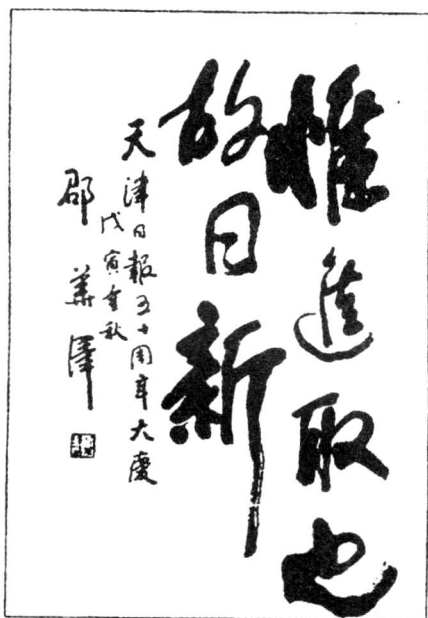 惟進取也
故日新
天津日報五十周年大慶
戊寅金秋
邵華澤